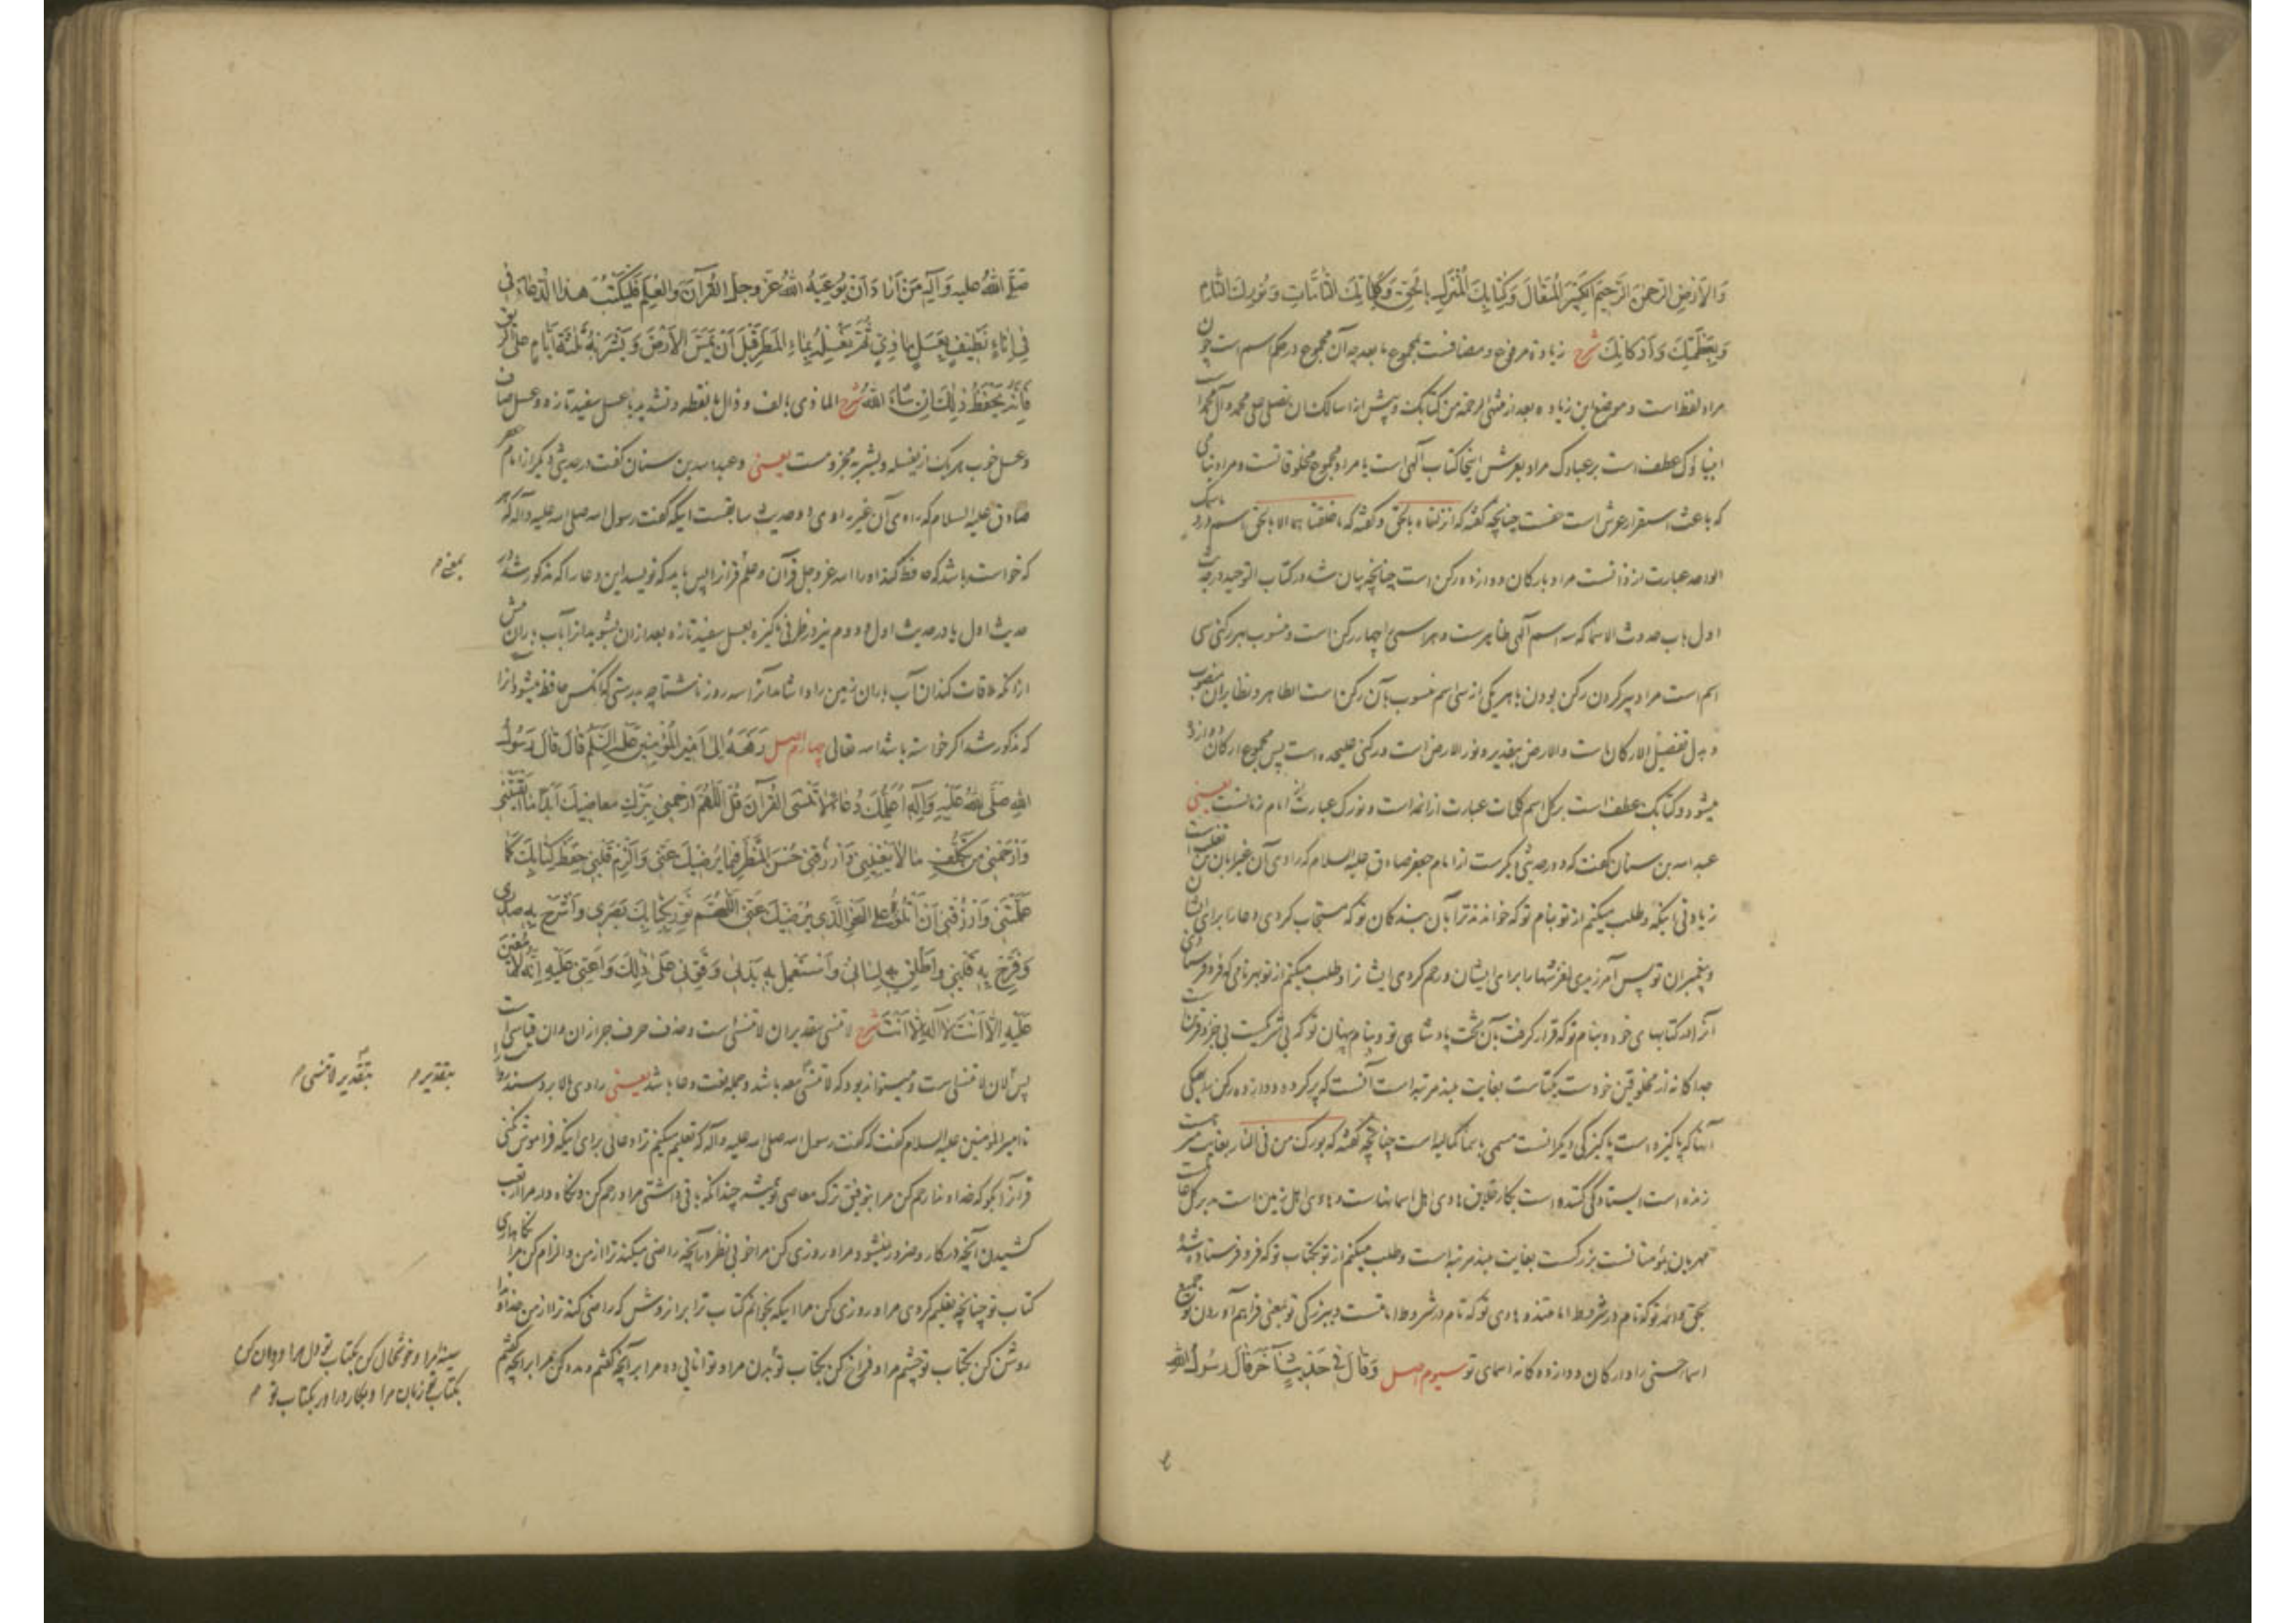 وَالاَرْضِ الرَّحْمٰنِ الرَّحِیمِ الْکَبِیرِ الْمُتَعَالِ وَکِتَابِکَ الْمُنْزَلِ بِالْحَقِّ وَکَلِمَاتِکَ التَّامَّاتِ وَنُورِکَ التَّامِّ
وَبِعَظَمَتِکَ وَاَرْکَانِکَ شرح زیادة مرفوع و مضافست بمجموع مابعد چه آن مجموع در حکم اسم است چون
مراد لفظ است و موضع این زیاده بعد از منتهی الرحمة من کتابک و پیش از اسالک ان تصلی علی محمد و آل محمد است
انبیاؤک عطف است بر عبادک مراد بعرش اینجا کتاب آلهی است یا مراد مجموع مخلوقاتست و مراد بنامی
که باعث استقرار عرش است حقست چنانچه گفته که انزلناه بالحق و گفته که ما خلقنا هما الا بالحق باسمک
الواحد عبارت از ذاتست مراد بارکان دوازده رکن است چنانچه بیان شد در کتاب التوحید در حدیث
اول باب حدوث الاسما که سه اسم آلهی ظاهرست و هر اسمی را چهار رکن است و منسوب بهر رکنی سی
اسم است مراد بپر کردن رکن بودن با هر یکی از سی اسم منسوب بآن رکن است الطاهر و نظایر آن منصوب
و بدل تفصیل الارکان است والارض بتقدیر و نور الارض است و رکنی علیحده است پس مجموع ارکان دوازده
میشود و کتابک عطف است بر کل اسم کلمات عبارت از ائمه است و نورک عبارت از امام زمانست یعنی
عبد الله بن سنان گفت که در حدیثی دیگرست از امام جعفر صادق علیه السلام که راوی آن غیر ابان تغلب است
زیادتی اینکه و طلب میکنم از تو بنام تو که خواندند ترا بآن بندگان تو که مستجاب کردی دعا را برای ایشان
و پیغمبران تو پس آمرزیدی لغزشها را برای ایشان و رحم کردی ایشانرا و طلب میکنم از تو بهر نامی که فرو فرستادی
آنرا در کتابهای خود و بنام تو که قرار گرفت بآن تخت پادشاهی تو و بنام پنهان تو که بی شریکست بی جزو قرینست
جداگانه از مخلوقین خودست یکتاست بغایت بلند مرتبه است آنست که پر کرده دوازده رکن را یکی
آنها که پاکیزه است پاکیزگی دیگر انست مسمی باسما کمالیه است چنانچه گفته که بورک من فی النار بغایت
زنده است ایستادگی کننده است بکار خلایق هادی اهل اسمانهاست و هادی اهل زمین است مدبر کل
مهربان بمؤمنانست بزرگست بغایت بلند مرتبه است و طلب میکنم از تو بکتاب تو که فرو فرستاده شد
بحق و ائمه تو که تام در شروط امامتند و هادی تو که تام در شروط امامتست و ببزرگی تو یعنی فراهم آوردن تو جمیع
اسما حسنی را و ارکان دوازده گانه اسمای تو سیوم اصل وَقَالَ فِی حَدِیثٍ آخَرَ قَالَ رَسُولُ اللهِ
صَلَّی اللهُ عَلیهِ وَآلِهِ مَنْ اَرَادَ اَنْ یُوعِیَهُ اللهُ عَزَّ وَجَلَّ الْقُرْآنَ وَالْعِلْمَ فَلْیَکْتُبْ هٰذَا الدُّعَاءَ فی
فِی اِنَاءٍ نَظِیفٍ بِعَسَلٍ مَاذِیٍّ ثُمَّ یَغْسِلُهُ بِمَاءِ الْمَطَرِ قَبْلَ اَنْ یَمَسَّ الاَرْضَ وَیَشْرَبُهُ ثَلٰثَةَ اَیَّامٍ عَلَی الرِّیقِ
فَاِنَّهُ یَحْفَظُ ذٰلِکَ اِنْ شَاءَ اللهُ شرح الماذی بالف و ذال با نقطه و تشدید یا عسل سفید تازه و عسل صاف
و عسل خوب هر یک از یغسله و یشربه مجزومست یعنی و عبد الله بن سنان گفت در حدیثی دیگر از امام جعفر
صادق علیه السلام که راوی آن غیر راوی دو حدیث سابقست اینکه گفت رسول الله صلی الله علیه و آله که هر
که خواسته باشد که حافظ کند او را الله عز و جل قرآن و علم قرآن را پس باید که نویسد این دعا را که مذکور شد در
حدیث اول یا در حدیث اول و دوم نیز در ظرفی پاکیزه بعسل سفید تازه بعد از آن بشوید آنرا بآب باران پیش
از آنکه ملاقات کند آن آب باران زمین را و اشامد آنرا سه روز ناشتا چه بدرستی که آنکس حافظ میشود آنرا
که مذکور شد اگر خواسته باشد الله تعالی چهارم اصل رَفَعَهُ اِلَی اَمِیرِ الْمُؤْمِنِینَ عَلَیهِ السَّلَامُ قَالَ قَالَ رَسُولُ
اللهِ صَلَّی اللهُ عَلَیْهِ وَآلِهِ اُعَلِّمُکَ دُعَاءً لاَ تَنْسَی الْقُرْآنَ قُلِ اللّٰهُمَّ ارْحَمْنِی بِتَرْکِ مَعَاصِیکَ اَبَدًا مَا اَبْقَیْتَنِی
وَارْحَمْنِی مِنْ تَکَلُّفِ مَا لاَ یَعْنِینِی وَارْزُقْنِی حُسْنَ الْمَنْظَرِ فِیمَا یُرْضِیکَ عَنِّی وَاَلْزِمْ قَلْبِی حِفْظَ کِتَابِکَ کَمَا
عَلَّمْتَنِی وَارْزُقْنِی اَنْ اَتْلُوَهُ عَلَی النَّحْوِ الَّذِی یُرْضِیکَ عَنِّی اللّٰهُمَّ نَوِّرْ بِکِتَابِکَ بَصَرِی وَاشْرَحْ بِهِ صَدْرِی
وَفَرِّحْ بِهِ قَلْبِی وَاَطْلِقْ بِهِ لِسَانِی وَاسْتَعْمِلْ بِهِ بَدَنِی وَقَوِّنِی عَلَی ذٰلِکَ وَاَعِنِّی عَلَیْهِ اِنَّهُ لاَ مُعِینَ
عَلَیْهِ اِلاَّ اَنْتَ لاَ اِلٰهَ اِلاَّ اَنْتَ شرح لا تنسی بتقدیر ان لا تنسی است و حذف حرف جر از ان و ان قیاسی است
پس لان لا تنسی است و میتواند بود که لا تنسی معه باشد و جمله نعت دعا باشد یعنی راوی بالا برد سند را
تا امیر المومنین علیه السلام گفت که گفت رسول الله صلی الله علیه و آله که تعلیم میکنم ترا دعائی برای اینکه فراموش نکنی
قرآنرا بگو که خداوندا رحم کن مرا بتوفیق ترک معاصی تو همیشه چندانکه باقی داشتی مرا و رحم کن و نگاه دار مرا از تعب
کشیدن آنچه در کار و ضرور نمیشود مرا و روزی کن مرا خوبی نظر در آنچه راضی میکند ترا از من و الزام کن مرا نگاهداری
کتاب تو چنانچه تعلیم کردی مرا و روزی کن مرا اینکه بخوانم کتاب ترا بر آن روش که راضی کند ترا از من خداوندا
روشن کن بکتاب تو چشم مرا و فراخ کن بکتاب تو بدن مرا و توانایی ده مرا بر آنچه گفتم و مدد کن مرا بر آنچه گفتم
بمعنی م
بتقدیر م
بتقدیر لا تنسی م
سینه مرا و خوشحال کن بکتاب تو دل مرا و روان کن
بکتاب تو زبان مرا و بکار در آور بکتاب تو م